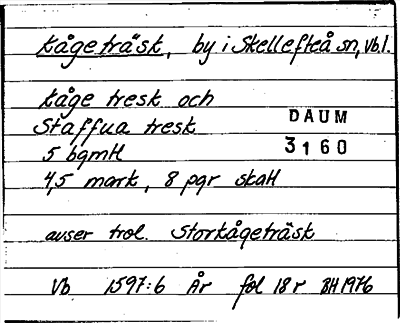 Kågeträsk, by i Skellefteå sn, Vb l.
Kåge tresk och
Staffua tresk
DAUM
3160
5 bgmtl
4,5 mark, 8 pgr skatt
avser trol. Storkågeträsk
Vb 1597:6 År fol 18 r BH 1976